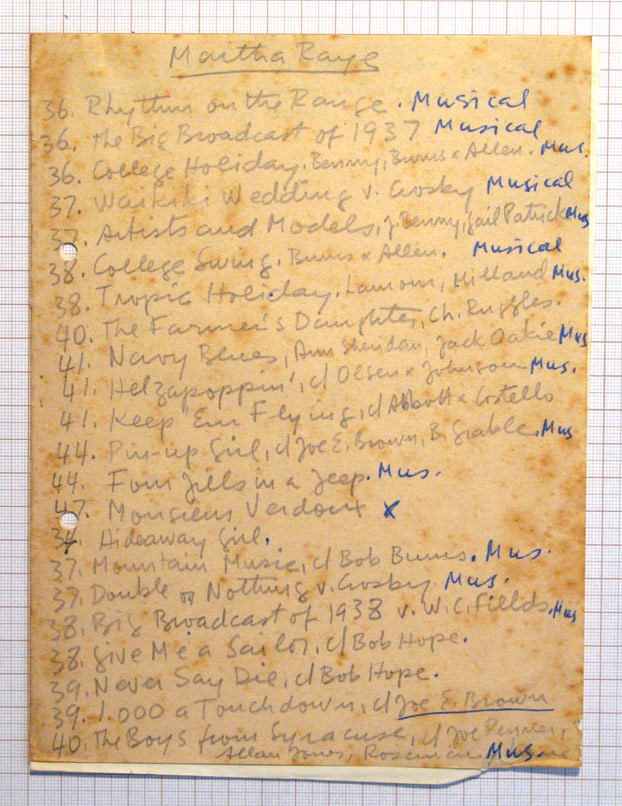 Martha Raye
36. Rhythm on the Range. Musical
36. The Big Broadcast of 1937 Musical
36. College Holiday. Benny, Burns & Allen. Mus.
37. Waikiki Wedding v. Crosby Musical
37. Artists and Models, J. Benny, Gail Patrick Mus
38. College Swing. Burns & Allen. Musical
38. Tropic Holiday. Lamour, Milland Mus.
40. The Farmer's Daughter, Ch. Ruggles.
41. Navy Blues, Ann Sheridan, Jack Oakie Mus
41. Helzapoppin', c/ Olsen & Johnson Mus.
41. Keep 'Em Flying, c/ Abbott & Costello
44. Pin-up Girl, c/ Joe E. Brown, B. Grable. Mus
44. Four Jills in a Jeep. Mus.
47. Monsieur Verdoux x
Hideaway Girl.
37. Mountain Music, c/ Bob Burns. Mus.
37. Double or Nothing v. Crosby. Mus.
38. Big Broadcast of 1938 v. W.C. Fields. Mus
38. Give Me a Sailor, c/ Bob Hope.
39. Never Say Die, c/ Bob Hope.
39. 1.000 a Touchdown, c/ Joe E. Brown
40. The Boys from Syracuse, c/ Joe Penner,
Allan Jones, Mus.